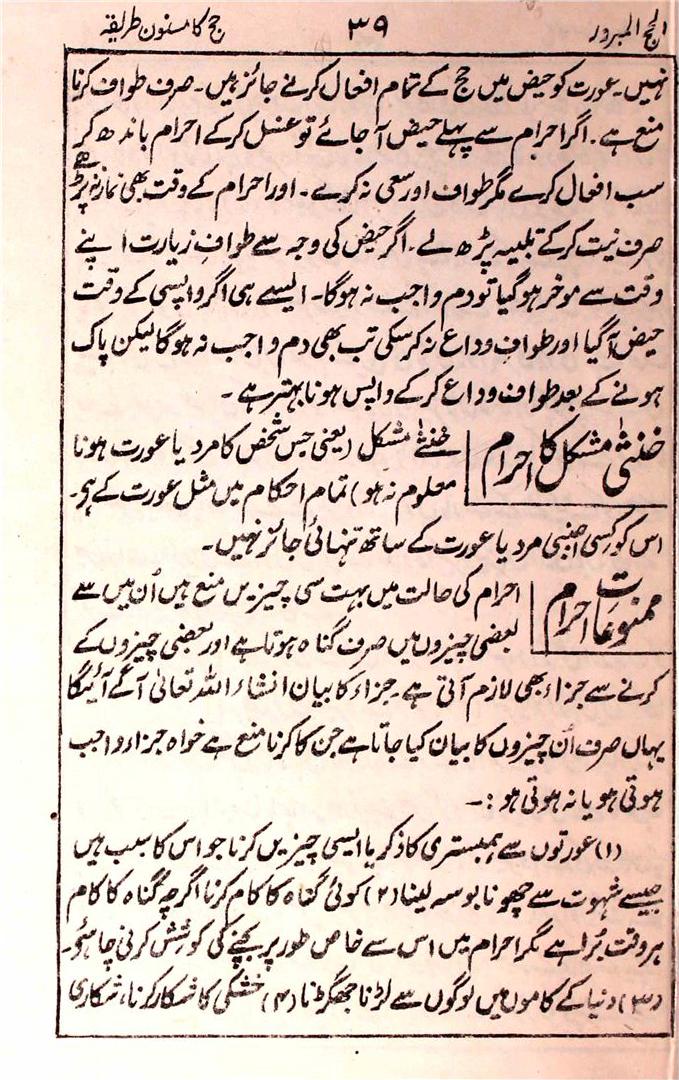 الحج المبرور ۳۹ حج کا مسنون طریقہ
نہیں۔ عورت کو حیض میں حج کے تمام افعال کرنے جائز ہیں۔ صرف طواف کرنا
منع ہے۔ اگر احرام سے پہلے حیض آ جائے تو غسل کرکے احرام باندھ کر
سب افعال کرے مگر طواف اور سعی نہ کرے۔ اور احرام کے وقت بھی نماز نہ پڑھے
صرف نیت کرکے تلبیہ پڑھ لے۔ اگر حیض کی وجہ سے طوافِ زیارت اپنے
وقت سے موخر ہو گیا تو دم واجب نہ ہوگا۔ ایسے ہی اگر واپسی کے وقت
حیض آگیا اور طوافِ وداع نہ کرسکی تب بھی دم واجب نہ ہوگا لیکن پاک
ہونے کے بعد طواف وداع کرکے واپس ہونا بہتر ہے۔
خنثیٰ مشکل کا احرام
خنثے مشکل (یعنی جس شخص کا مرد یا عورت ہونا
معلوم نہ ہو) تمام احکام میں مثل عورت کے ہی۔
اس کو کسی اجنبی مرد یا عورت کے ساتھ تنہائی جائز نہیں۔
ممنوعاتِ احرام
احرام کی حالت میں بہت سی چیزیں منع ہیں اُن میں سے
بعضی چیزوں میں صرف گناہ ہوتا ہے اور بعضی چیزوں کے
کرنے سے جزاء بھی لازم آتی ہے۔ جزاء کا بیان انشاء اللہ تعالیٰ آگے آئیگا
یہاں صرف اُن چیزوں کا بیان کیا جاتا ہے جن کا کرنا منع ہے خواہ جزاء واجب
ہوتی ہو یا نہ ہوتی ہو :۔
(۱) عورتوں سے ہمبستری کا ذکر یا ایسی چیزیں کرنا جو اس کا سبب ہیں
جیسے شہوت سے چھونا بوسہ لینا (۲) کوئی گناہ کا کام کرنا اگرچہ گناہ کا کام
ہر وقت بُرا ہے مگر احرام میں اس سے خاص طور پر بچنے کی کوشش کرنی چاہئیے۔
(۳) دنیا کے کاموں میں لوگوں سے لڑنا جھگڑنا (۴) خشکی کا شکار کرنا، شکاری